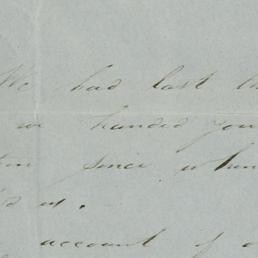 We had last th
we handed you
since when
us.
account of